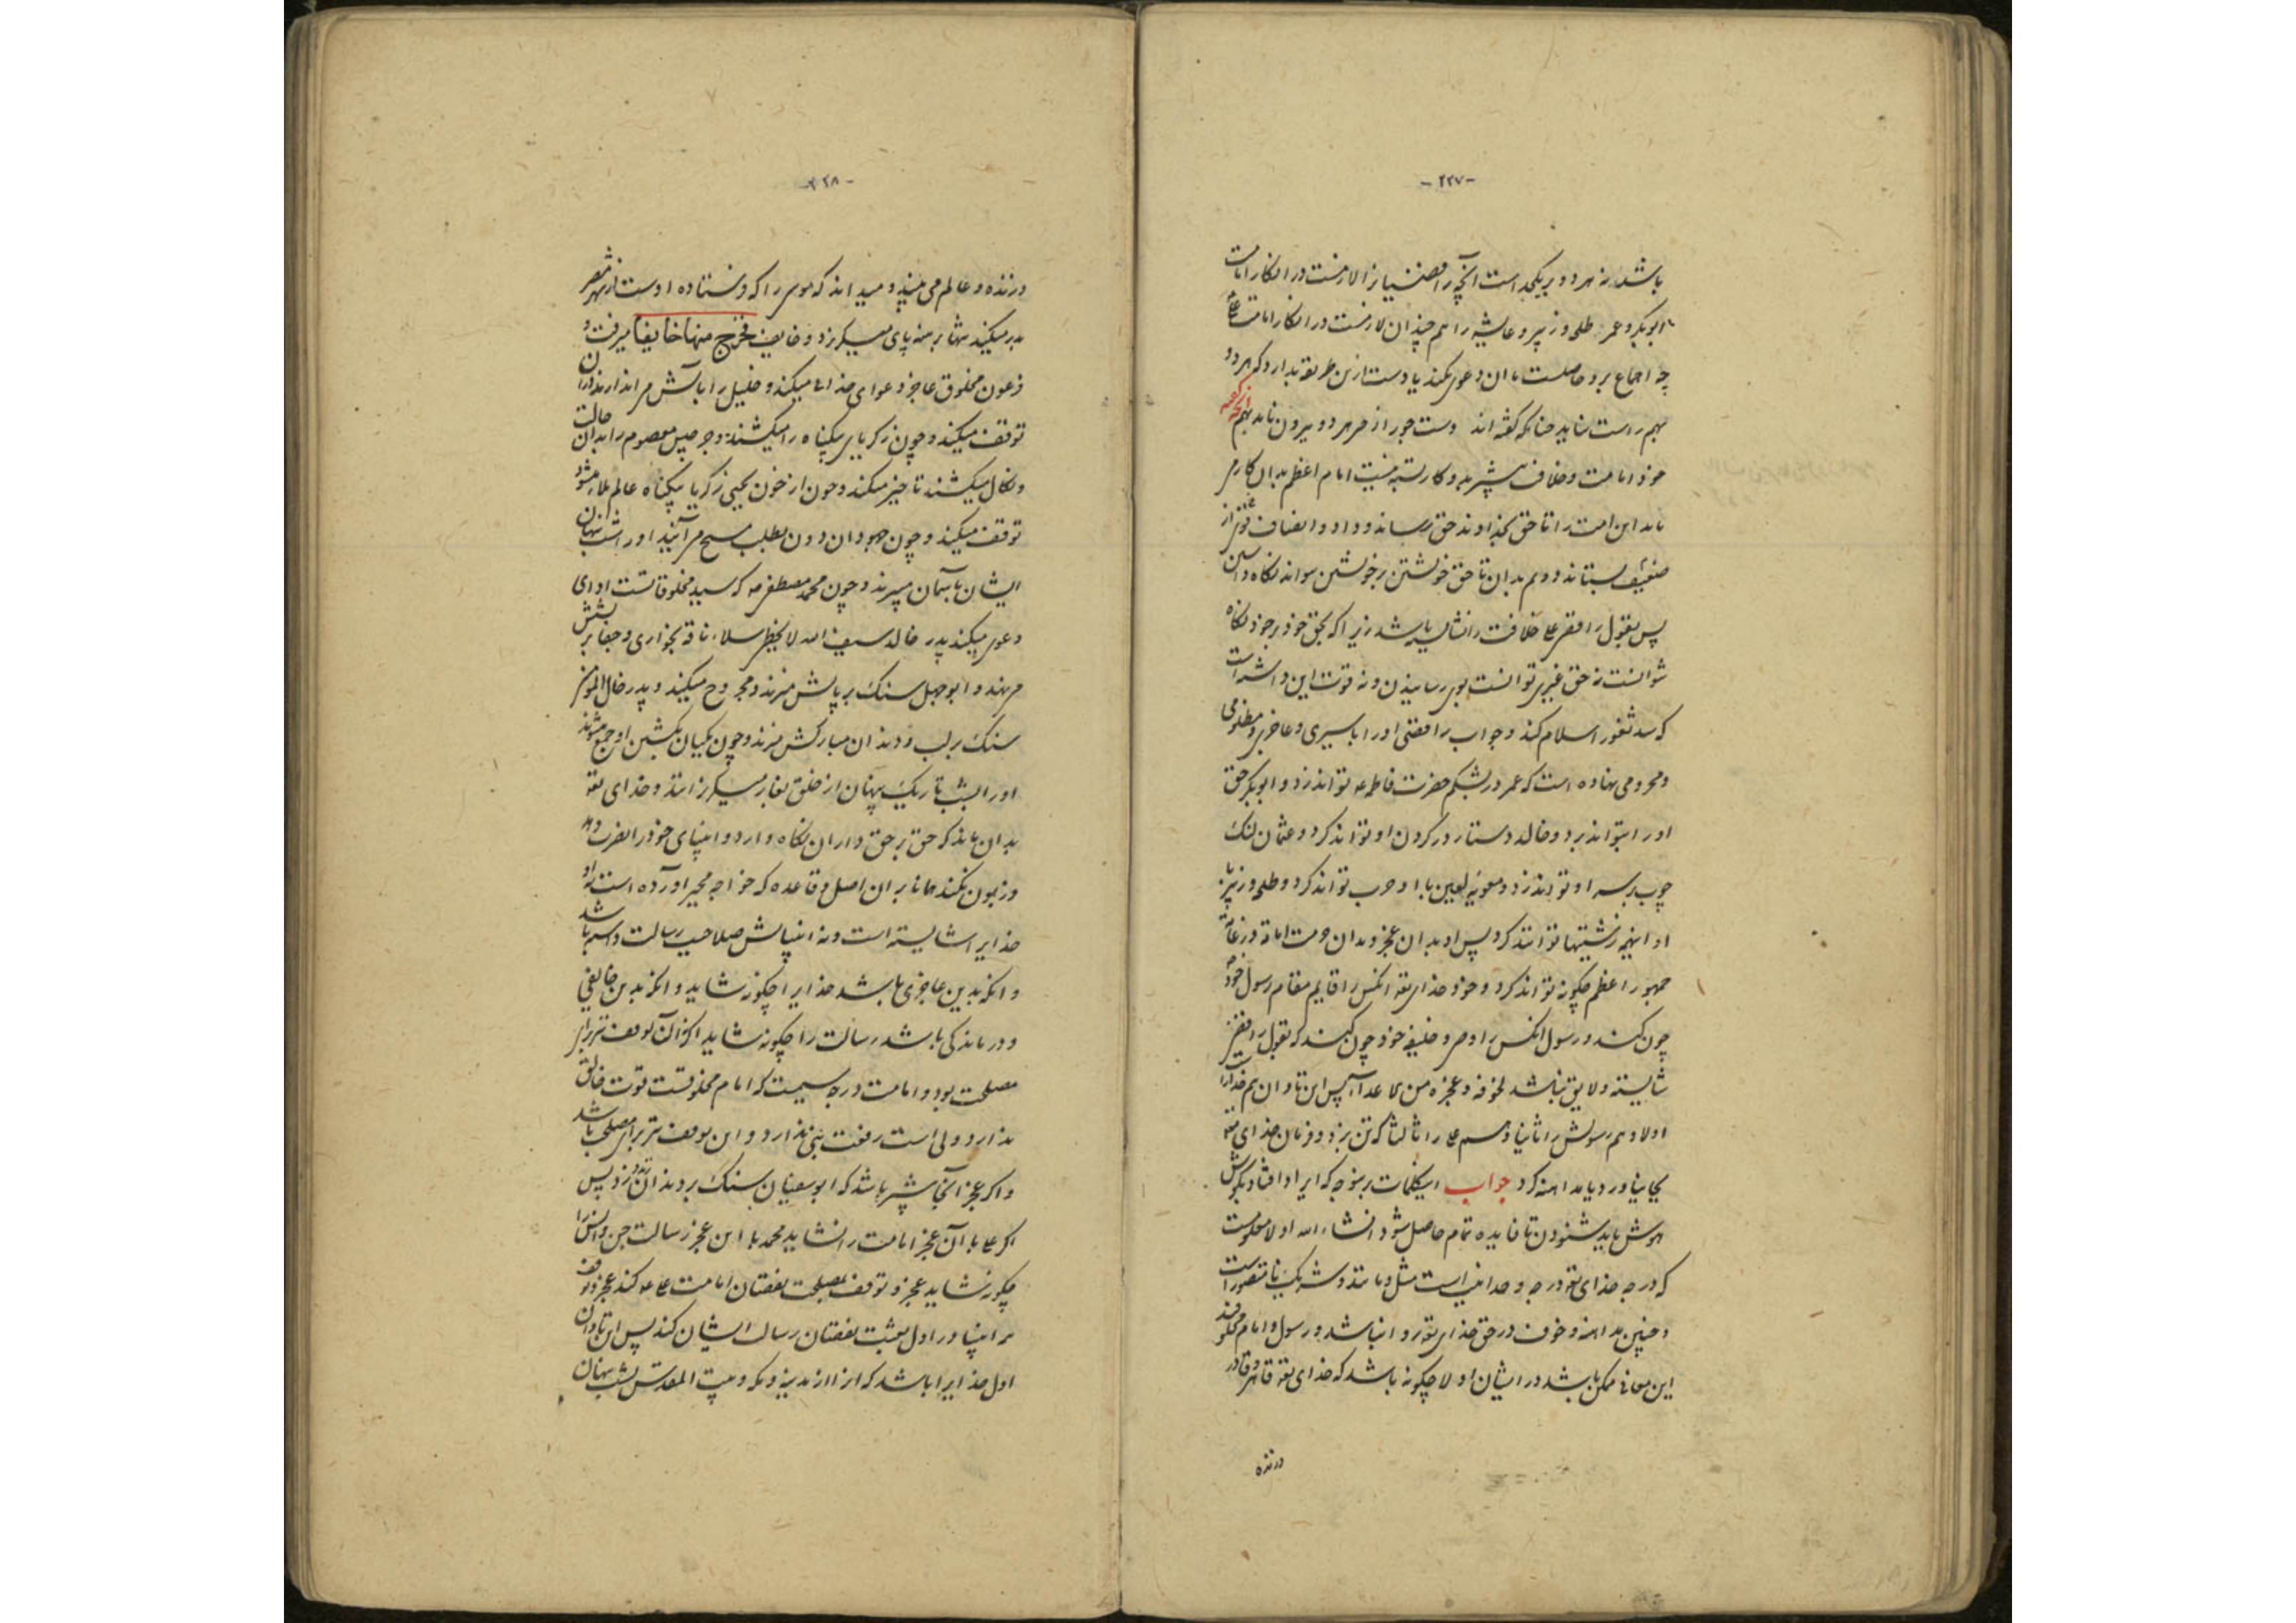 -۲۲۷-
باشد نه هر دو بر یکحد است آنچه رافضیانرا لازمست در انکار امامت
ابوبکر و عمر طلحه و زبیر و عایشه را هم چندان لازمست در انکار امامت علی
چه اجماع بر دو حاصلست دعوی نکند یا دست ازین طریقه بدارد که هر دو
بهم راست نیاید چنانکه گفته اند دست جور از هر دو بیرون ناید آنکه گفته
خود امامت و خلاف بستهٔ نیست امام اعظم بدان کار
باید این امت را تا حق بخداوند حق رساند و داد و انصاف از
ضعیف بستاند و هم بدان تا حق خویشتن بر خویشتن تواند نگاه داشتن
پس بقول رافضی علی خلافت را نشایسته باشد زیرا که بحق خود بر خود نگاه
نتوانست نه حق غیری توانست بوی رسانیدن و نه قوت این داشت
که سد ثغور اسلام کند و جواب رافضی او را باسیری و عاجزی و مظلومی
و محرومی نهاده است که عمر در بشکم حضرت فاطمه تواند زد و ابوبکر حق
او را بتواند برد و خالد دستار در گردن او تواند کرد و عثمان لنک
چوب بر سر او تواند زد و معویه لعین با او حرب تواند کرد و طلحه و زبیر با
او اینهمه زشتیها توانند کرد پس او بدان عجز و بدان حرمت امامة و زعامة
جمهور اعظم چگونه تواند کرد و خود خدای تعه انکس را قایم مقام رسول خود
چون کند و رسول انکس را وصی و خلیفه خود چون کند که بقول رافضی
شایسته و لایق نباشد لخوفه و عجزه من الاعداء پس این تاوان هم خدایرا
اولا و هم رسولش را ثانیا و هم علی را ثالثا که تن بزد و فرمان خدای تعه
بجا نیاورد یا مداهنه کرد جواب اینکلمات بر ینوجه که ایراد افتاد بگوش
هوش باید شنودن تا فایده تمام حاصل شود انشاء الله اولا معلومست
که درجه خدای تعه درجه وحدانیست مثل و مانند و شریک نامتصور است
و چنین مداهنه و خوف در حق خدای تعه روا نباشد و رسول و امام مخلوقند
این معانی ممکن باشد در ایشان اولا چگونه باشد که خدای تعه قاهر و قادر
درنده
-۲۲۸-
درنده و عالم می بیند و میداند که موسی را که فرستاده اوست از شهر مصر
بدر میکنند تنها برهنه پای میگریزد و خایف فخرج منها خایفا میرفت و
فرعون مخلوق عاجز دعوای خدائی میکند و خلیل را بآتش می اندازند
توقف میکند و چون زکریای بیگناه را میکشند و جرجیس معصوم را بدان حالت
و نکال میکشند تاخیر میکند و چون از خون یحیی زکریا بیگناه عالم ملاء میشود
توقف میکند و چون جهودان دون بطلب مسیح می آیند او را شب پنهان
ایشان بآسمان میبرند و چون محمد مصطفی ص که سید مخلوقاتست ادای
دعوی میکند پدر خالد سیف الله لایحظر سلاء ناقه بخواری و جفا بر پشتش
می نهند و ابوجهل سنک بر پایش میزند و مجروح میکند و پدر خال المومنین
سنک بر لب و دندان مبارکش میزند و چون مکیان بکشتن او جمع میشوند
او را بشب تاریک پنهان از خلق بغار میگریزانند و خدای تعه
بدان ماند که حق بر حق داران نگاه دارد و انبیای خود را نصرت دهد
و زبون نکند همانا بر ان اصل و قاعده که خواجه مجبر آورده است نه او
خدایرا شایسته است و نه انبیایش صلاحیت رسالت داشته باشد
و آنکه بدین عاجزی باشد خدایرا چگونه شاید و آنکه بدین خایفی
و درماندگی باشد رسالت را چگونه شاید اگر آن توقف از برای
مصلحت بود و امامت درجه سیمست که امام مخلوقست قوت خالق
ندارد و ولی است رفعت نبی ندارد و این توقف نیز برای مصلحت باشد
و اگر عجز آنجا بیشتر باشد که ابوسفیان سنک بر دندان زد پس
اگر علی با آن عجز امامت را نشاید محمد با این عجز رسالت جن و انس را
چگونه شاید عجز و توقف بمصلحت نقصان امامت علی ع کند عجز و توقف
انبیا در اول بعثت نقصان رسالت ایشان کند پس این تاوان
اول خدایرا باشد که از مدینه و مکه و بیت المقدس بشب پنهان